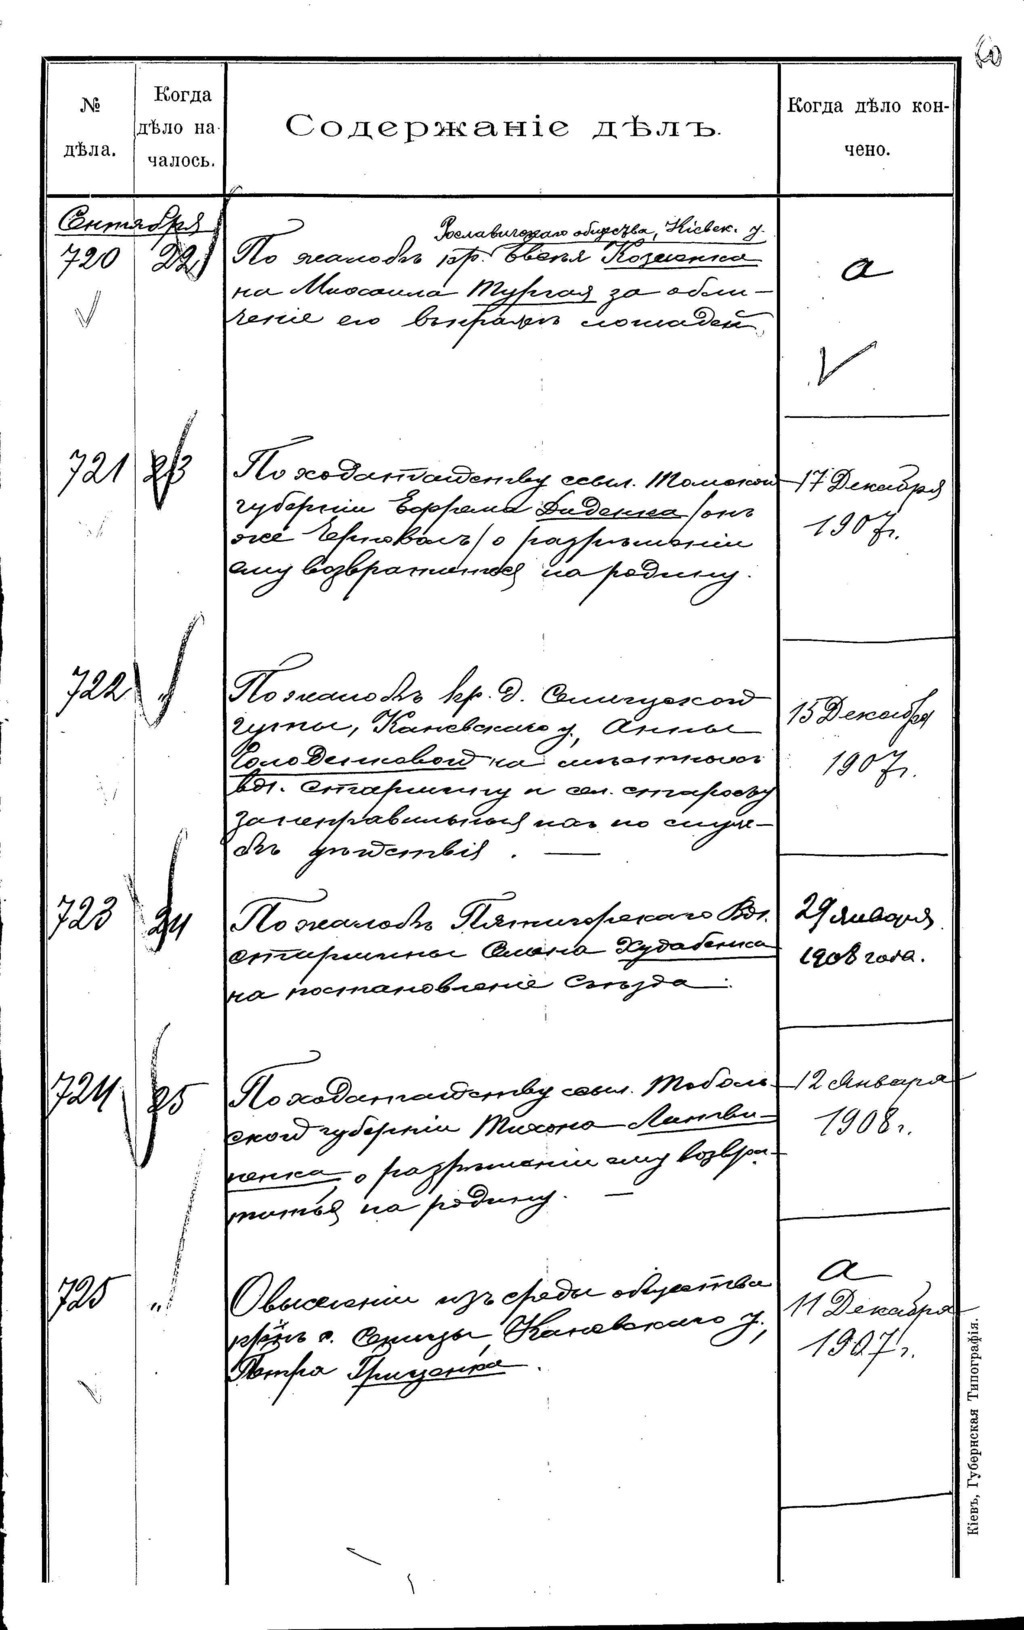 60
№ дѣла.
Когда дѣло на-
чалось.
Содержаніе дѣлъ.
Когда дѣло кон-
чено.
Сентября
720 22
Рославичскаго общества, Кіевск. у.
По жалобѣ кр. Евсѣя Козленка
на Михаила Тургая за обли-
ченіе его въ кражѣ лошадей
а
721 23
По ходатайству ссыл. Томской
губерніи Ефрема Диденка /онъ
же Черноволъ/ о разрѣшеніи
ему возвратиться на родину.
17 Декабря
1907г.
722 "
По жалобѣ кр. д. Селищской
гуты, Каневскаго у., Анны
Солоденковой на мѣстнаго
вол. старшину и сел. старосту
за неправильныя ихъ по служ-
бѣ дѣйствія. —
15 Декабря
1907г.
723 24
По жалобѣ Пятигорскаго Вол.
старшины Семена Худабенка
на постановленіе Съѣзда
29 Января
1908 года.
724 25
По ходатайству ссыл. Тоболь-
ской губерніи Тихона Литви-
ненка о разрѣшеніи ему возвра-
титься на родину. —
12 Января
1908г.
725 "
О выселеніи изъ среды общества
кр-нъ с. Селища, Каневскаго у.,
Петра Гриценка.
а
11 Декабря
1907г.
Кіевъ, Губернская Типографія.